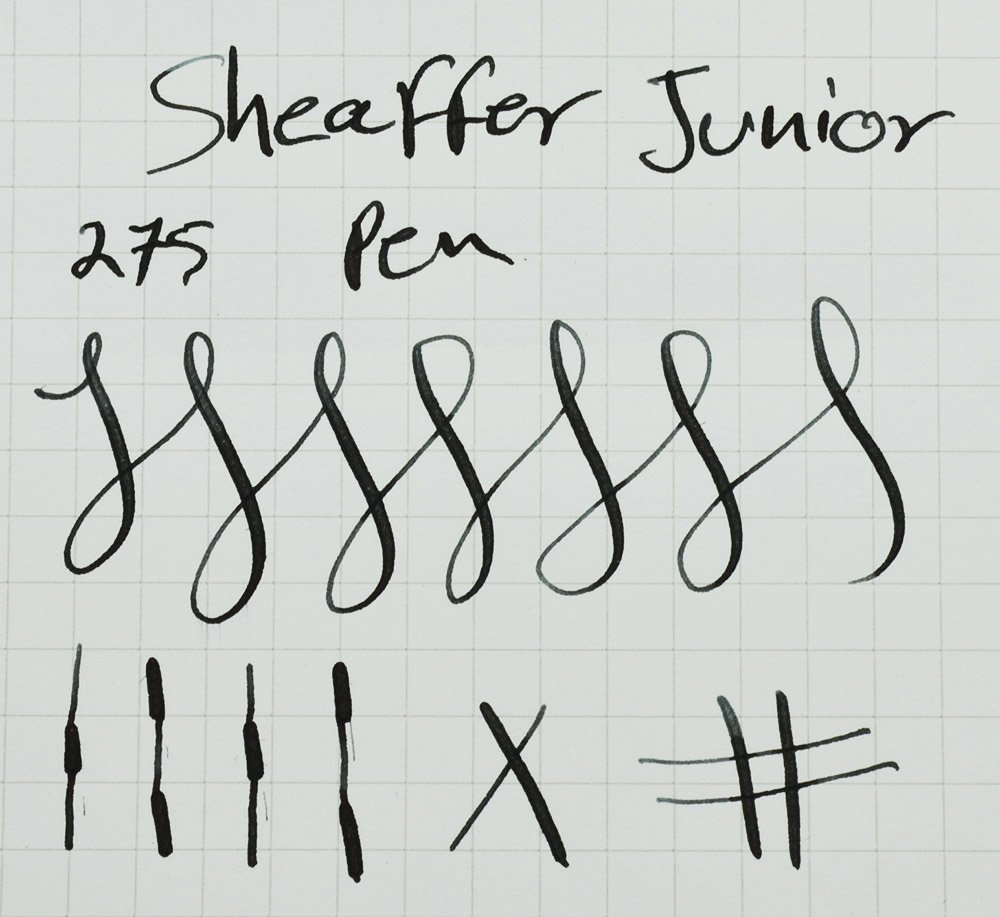 Sheaffer Junior
275 Pen
X #